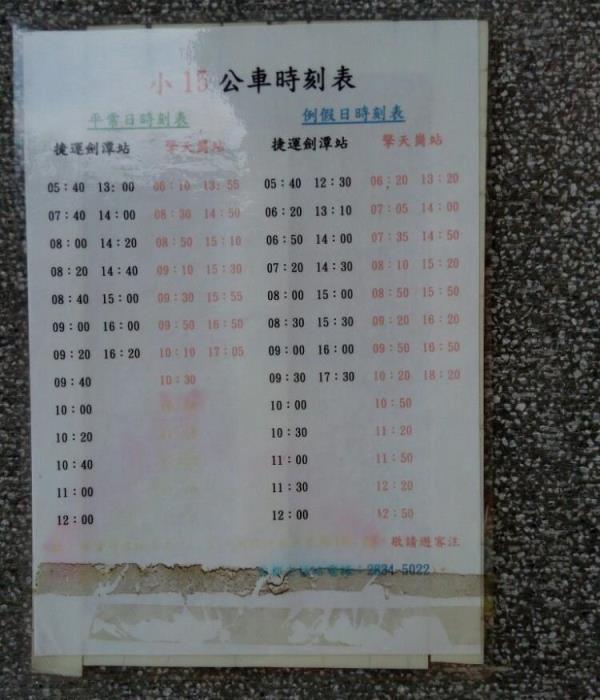 小 15 公車時刻表
平常日時刻表 例假日時刻表
捷運劍潭站 擎天崗站 捷運劍潭站 擎天崗站
05：40 13：00 06：10 13：55 05：40 12：30 06：20 13：20
07：40 14：00 08：30 14：50 06：20 13：10 07：05 14：00
08：00 14：20 08：50 15：10 06：50 14：00 07：35 14：50
08：20 14：40 09：10 15：30 07：20 14：30 08：10 15：20
08：40 15：00 09：30 15：55 08：00 15：00 08：50 15：50
09：00 16：00 09：50 16：50 08：30 15：30 09：20 16：20
09：20 16：20 10：10 17：05 09：00 16：00 09：50 16：50
09：40 10：30 09：30 17：30 10：20 18：20
10：00 10：00 10：50
10：20 10：30 11：20
10：40 11：00 11：50
11：00 11：30 12：20
12：00 12：00 12：50
敬請遊客注
2834-5022